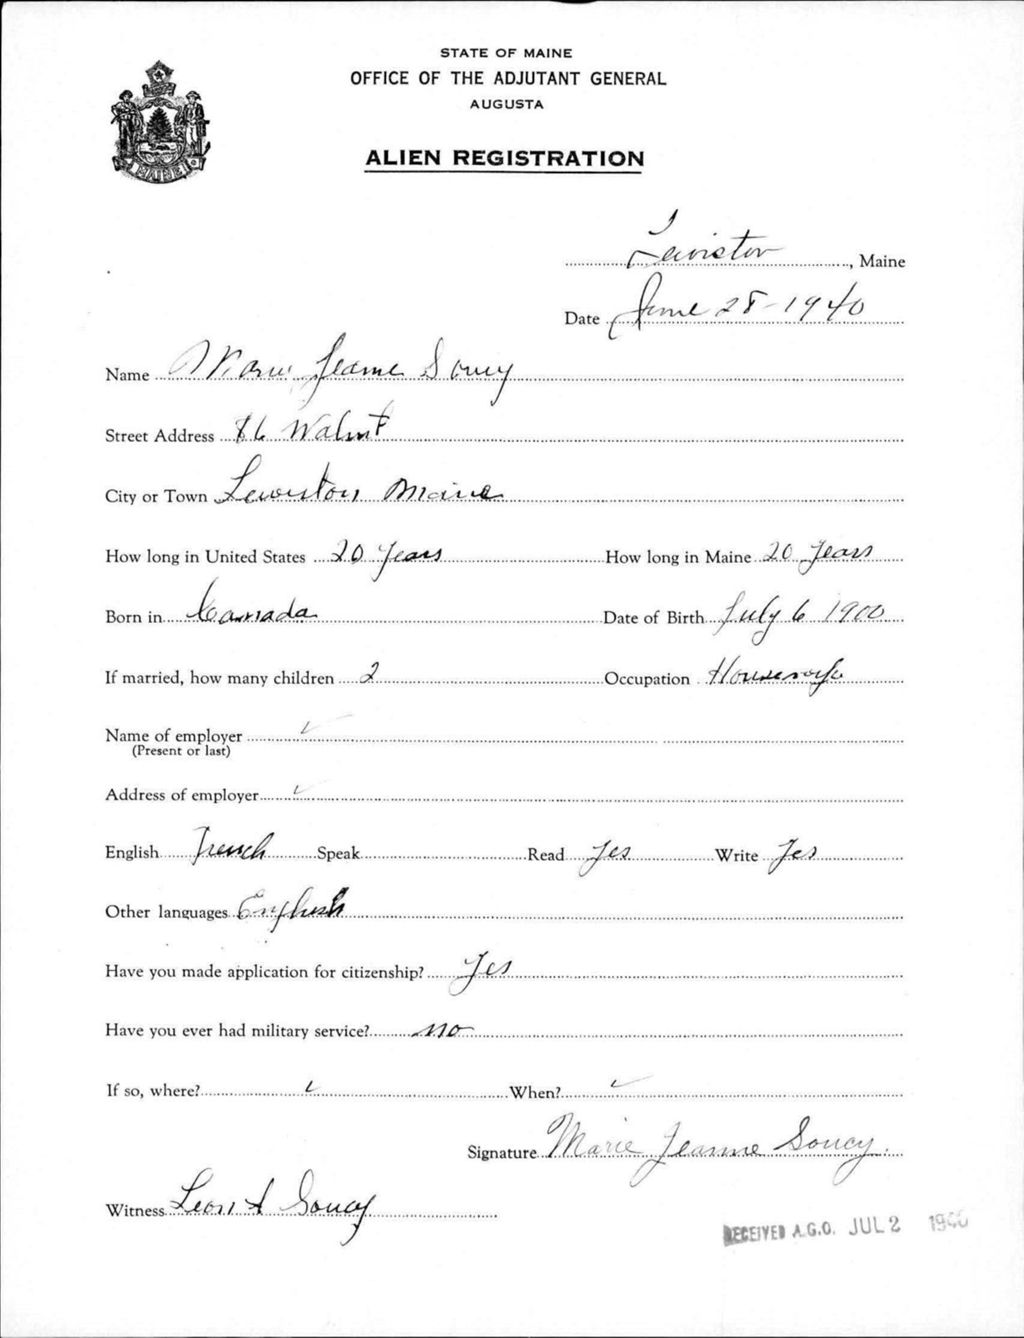 STATE OF MAINE
OFFICE OF THE ADJUTANT GENERAL
AUGUSTA
ALIEN REGISTRATION
MAINE
Lewiston, Maine
Date June 28-1940
Name Marie Jeanne Soucy
Street Address 86 Walnut
City or Town Lewiston Maine
How long in United States 20 Years How long in Maine 20 Years
Born in Canada Date of Birth July 6 1900
If married, how many children 2 Occupation Housewife
Name of employer
(Present or last)
Address of employer
English French Speak Read Yes Write Yes
Other languages English
Have you made application for citizenship? Yes
Have you ever had military service? no
If so, where? When?
Signature Marie Jeanne Soucy.
Witness Leon A Soucy
RECEIVED A.G.O. JUL 2 1940